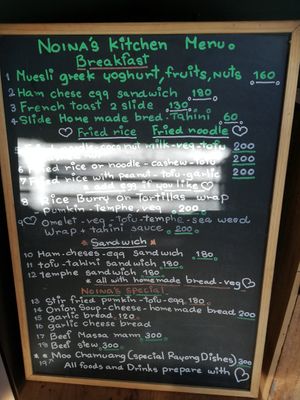 NOINA'S Kitchen Menu.
Breakfast
1 Muesli greek yoghurt, fruits, nuts 160
2 Ham chese egg sandwich .180.
3 French toast 2 slide .130.
4 Slide Home made bred. Tahini .60
Fried rice Fried noodle
5 Fried noodle coconut milk-veg-tofu 200
6 Fried rice or noodle - cashew-tofu 200
7 Fried rice with peanut-tofu-garlic 200
add egg if you like
8 Rice Burry or Tortillas wrap
Pumkin-Temphe, veg . 200 .
9 Omelet-veg-Tofu-temphe-sea weed
Wrap + tahini sauce . 200 .
Sandwich
10 Ham-cheses-egg sandwich .180.
11 tofu-tahini sandwich 180.
12 temphe sandwich 180.
* all with home made bread-veg
NOINA'S special
13 Stir fried pumkin-tofu-egg 180.
14 Onion soup-cheese-home made bread 200
15 garlic bread. 120.
16 garlic cheese bread
17 Beef Massa mam 300
18 Beef stew 300.
19 Moo Chamuang (Special Rayong Dishes) 300
All foods and Drinks prepare with